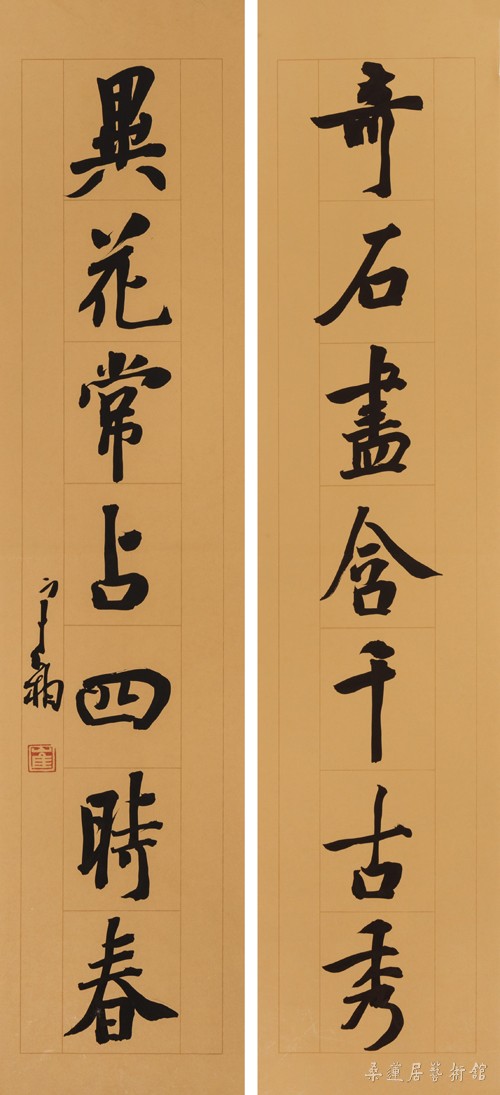 奇石盡含千古秀
異花常占四時春
桑蓮居藝術館